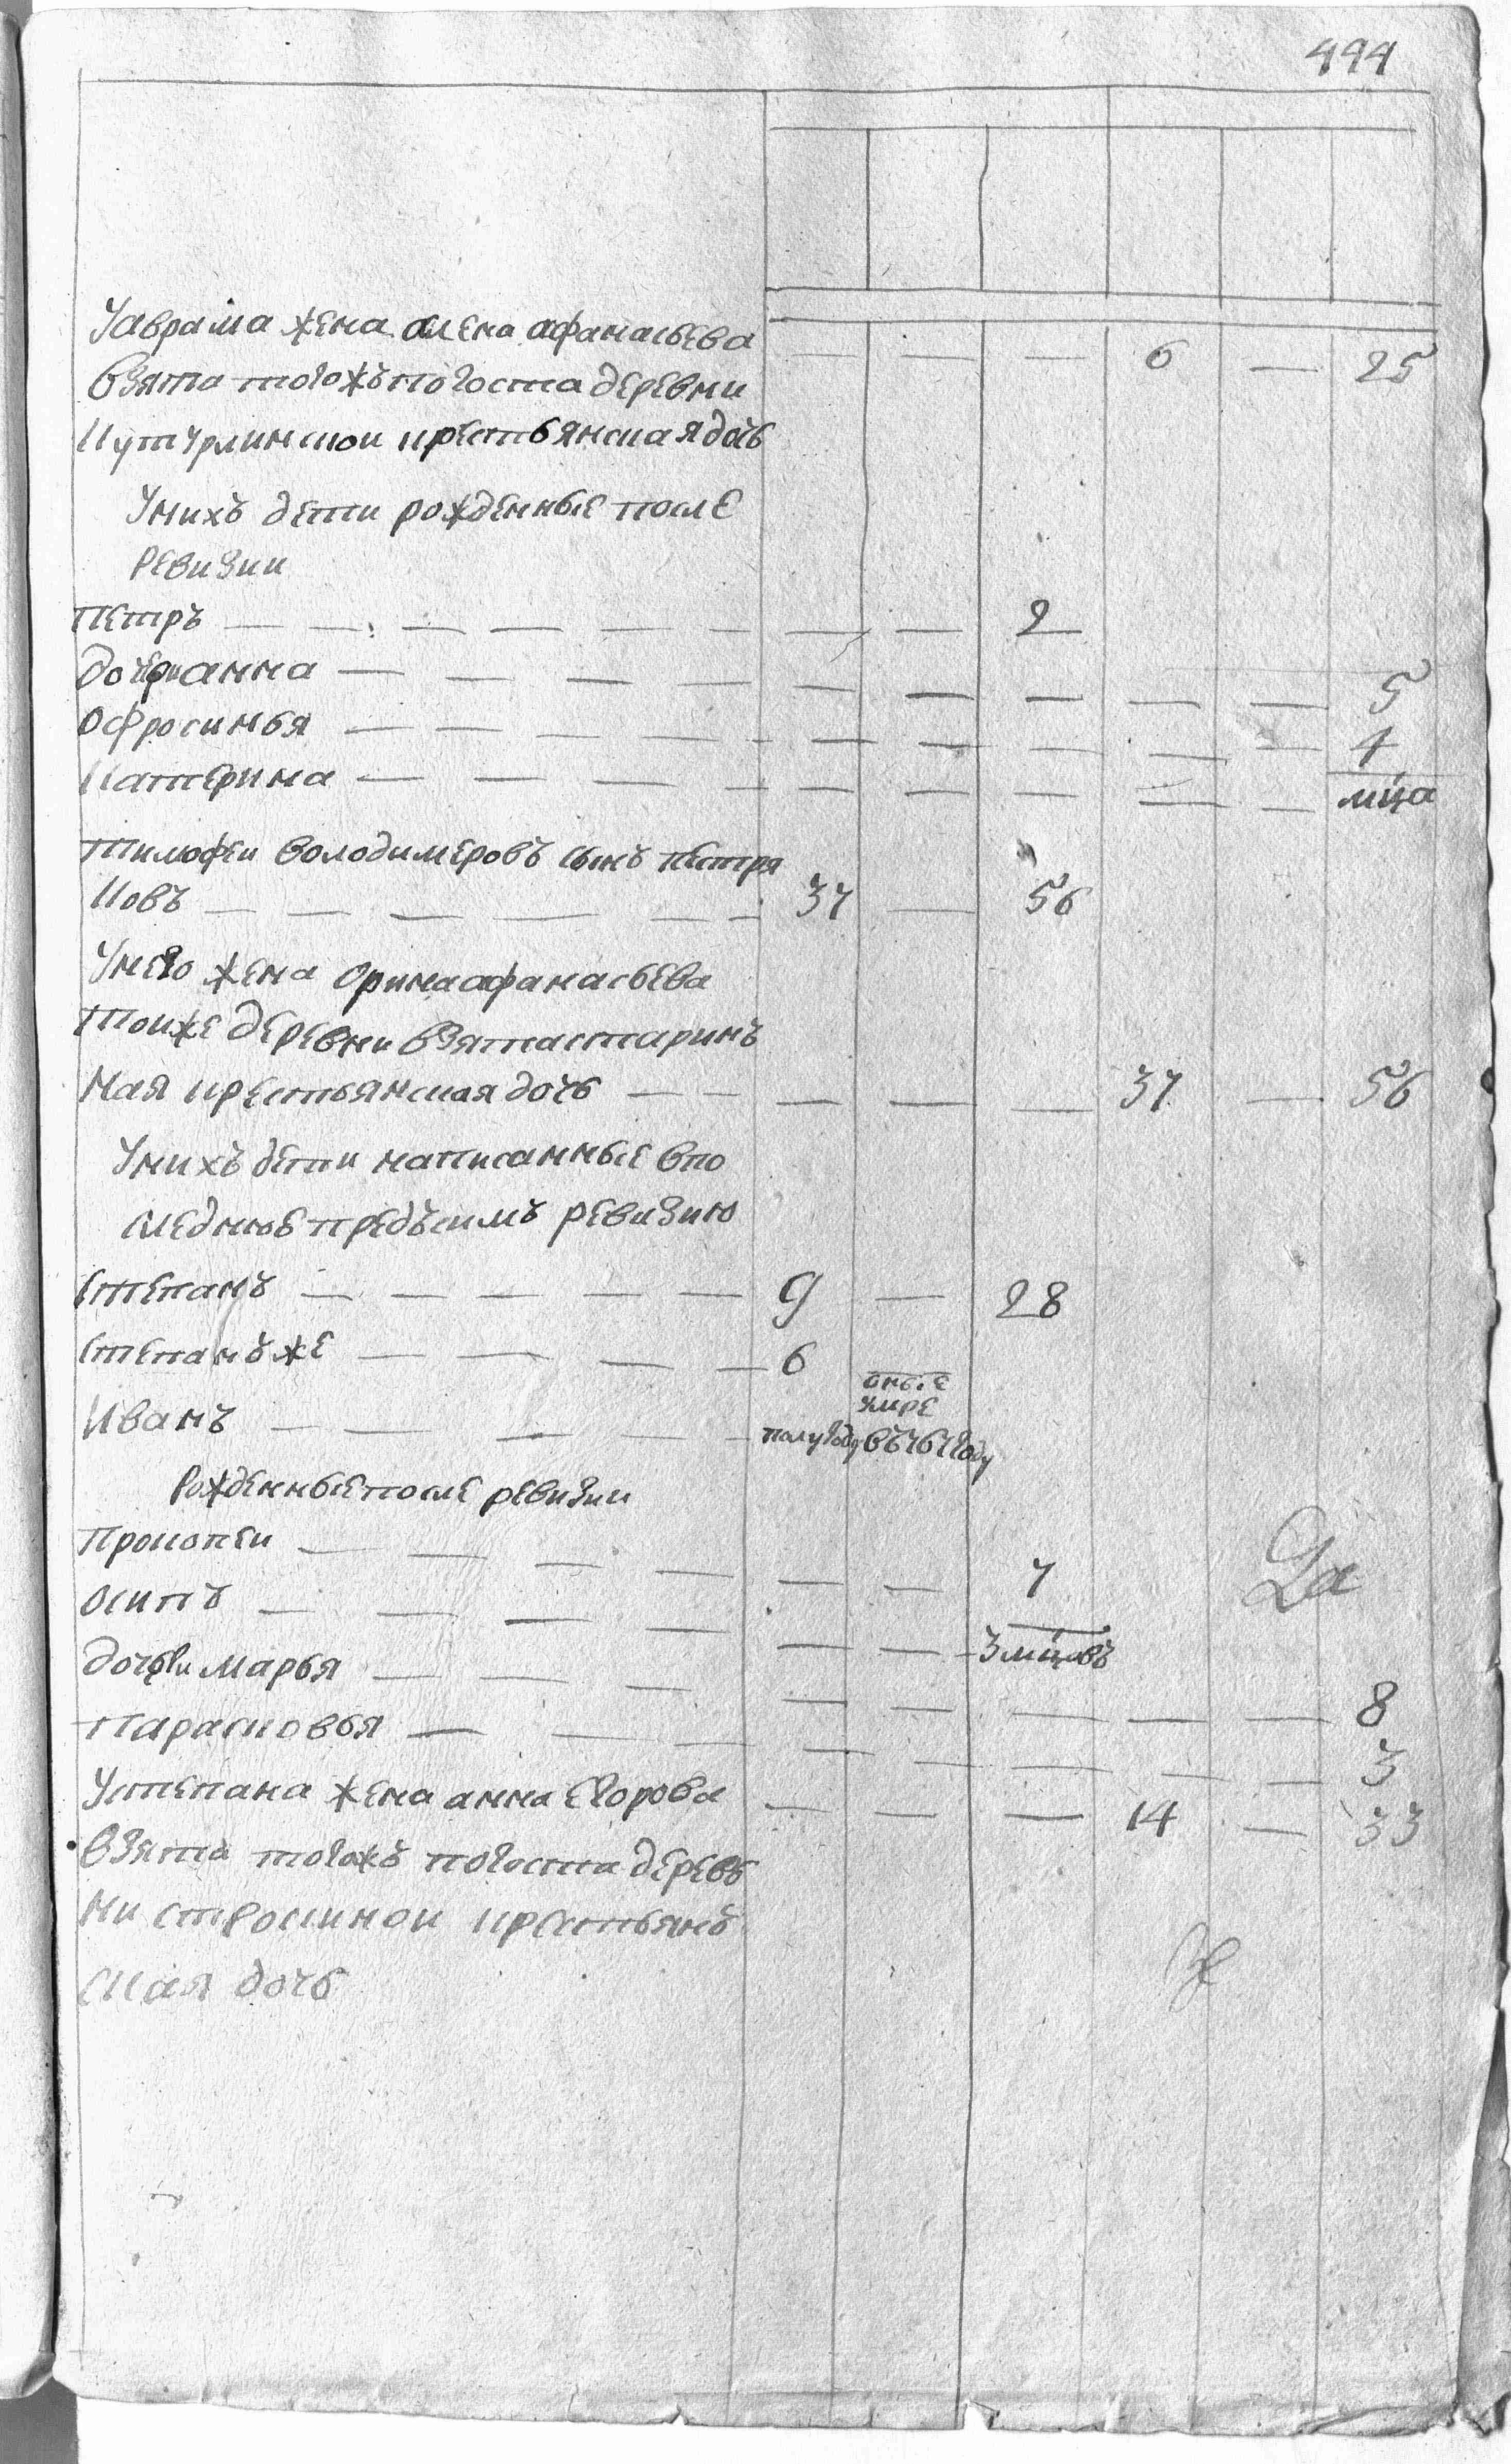 494
Уаврама жена олена афанасьева — — — 6 — 25
взята тогожъ погоста деревни
Кутурлинскои крестьянская дочь
Унихъ дети рожденные после
ревизии
Петръ — — — — — — — — 2
дочери анна — — — — — — — — — 5
Офросинья — — — — — — — — — 4
Катерина — — — — — — — — — мца
тимофеи володимеровъ сынъ пестря
ковъ — — — — — — 37 — 56
Унего жена Орина афанасьева
тоиже деревни взята старинъ
ная крестьянская дочь — — — — — 37 — 56
Унихъ дети написанные впо
следнюю предъсимъ ревизию
степанъ — — — — — 9 — 28
степанъ же — — — — 6
оные
умре
Иванъ — — — — — полугоду въ 767 году
рожденные после ревизии
Прокопеи — — — — — — 7
осипъ — — — — — — 3 мцовъ
дочери марья — — — — — — — — 8
парасковья — — — — — — — — 3
Устепана жена анна егорова — — — 14 — 33
взята тогожъ погоста деревъ
ни строкинои крестьянъ
ская дочь